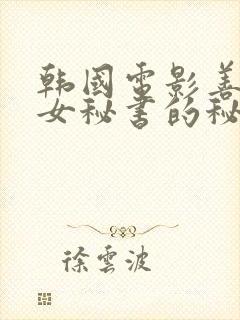 韩國電影善
女秘書的秘
徐雲波